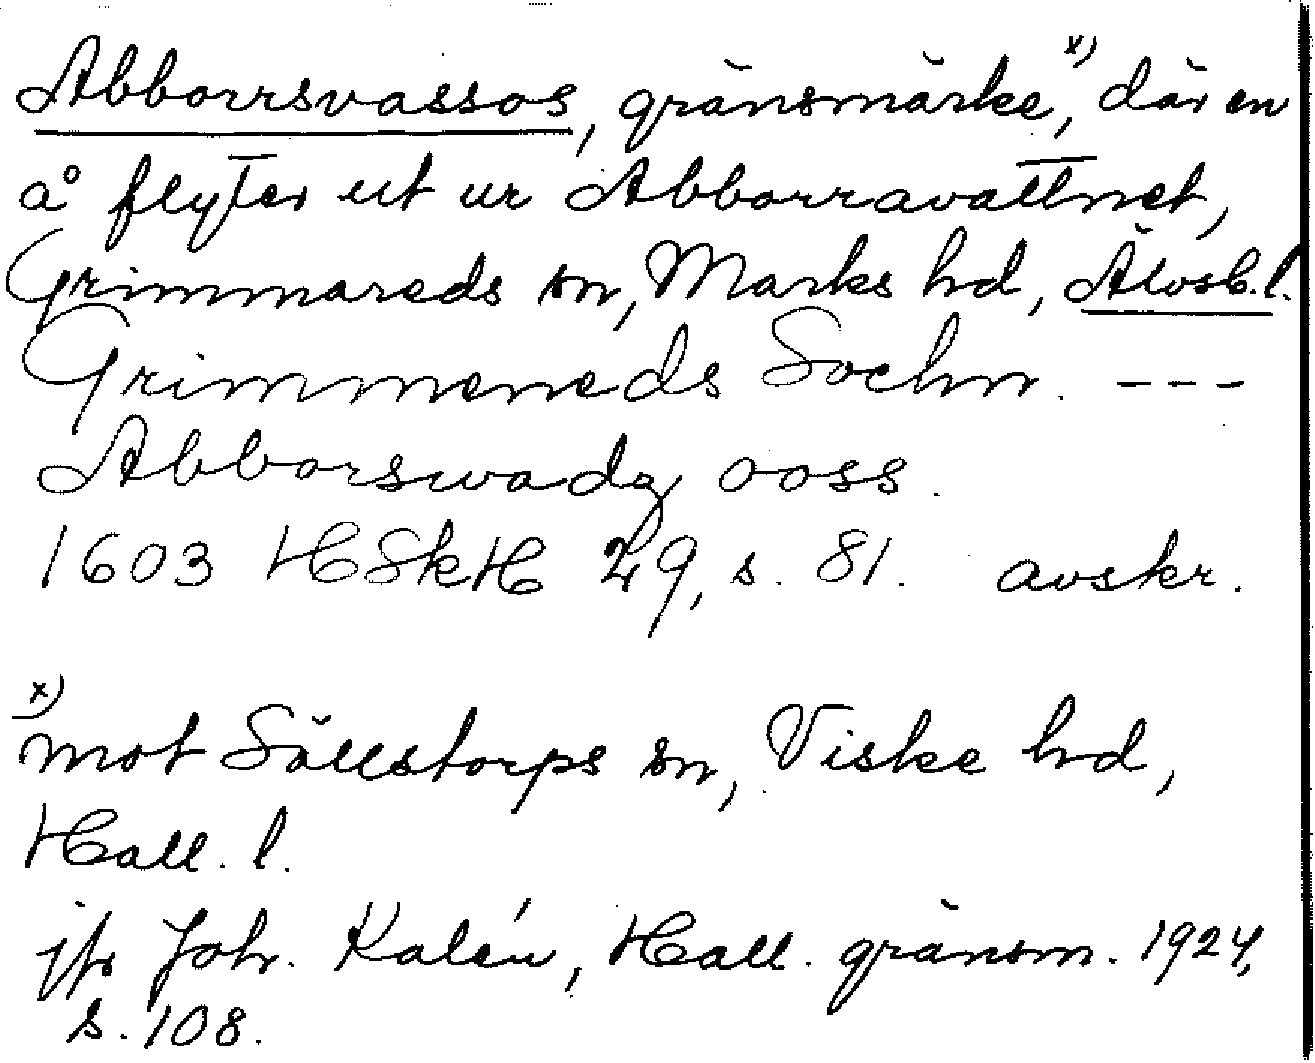 Abborrsvassos, gränsmärke,x) där en
å flyter ut ur Abborravattnet,
Grimmareds sn, Marks hd, Älvsb. l.
Grimmereds Sochn. ---
Abborswadz ooss.
1603 HSkH 29, s. 81. avskr.
x)
mot Sällstorps sn, Viske hd,
Hall. l.
jfr Joh. Kalén, Hall. gränsm. 1924,
s. 108.